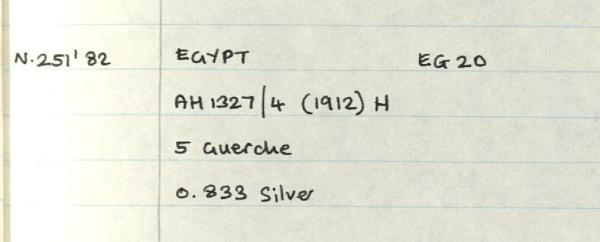 N.251'82 EGYPT EG 20
AH 1327/4 (1912) H
5 Guerche
0.833 Silver